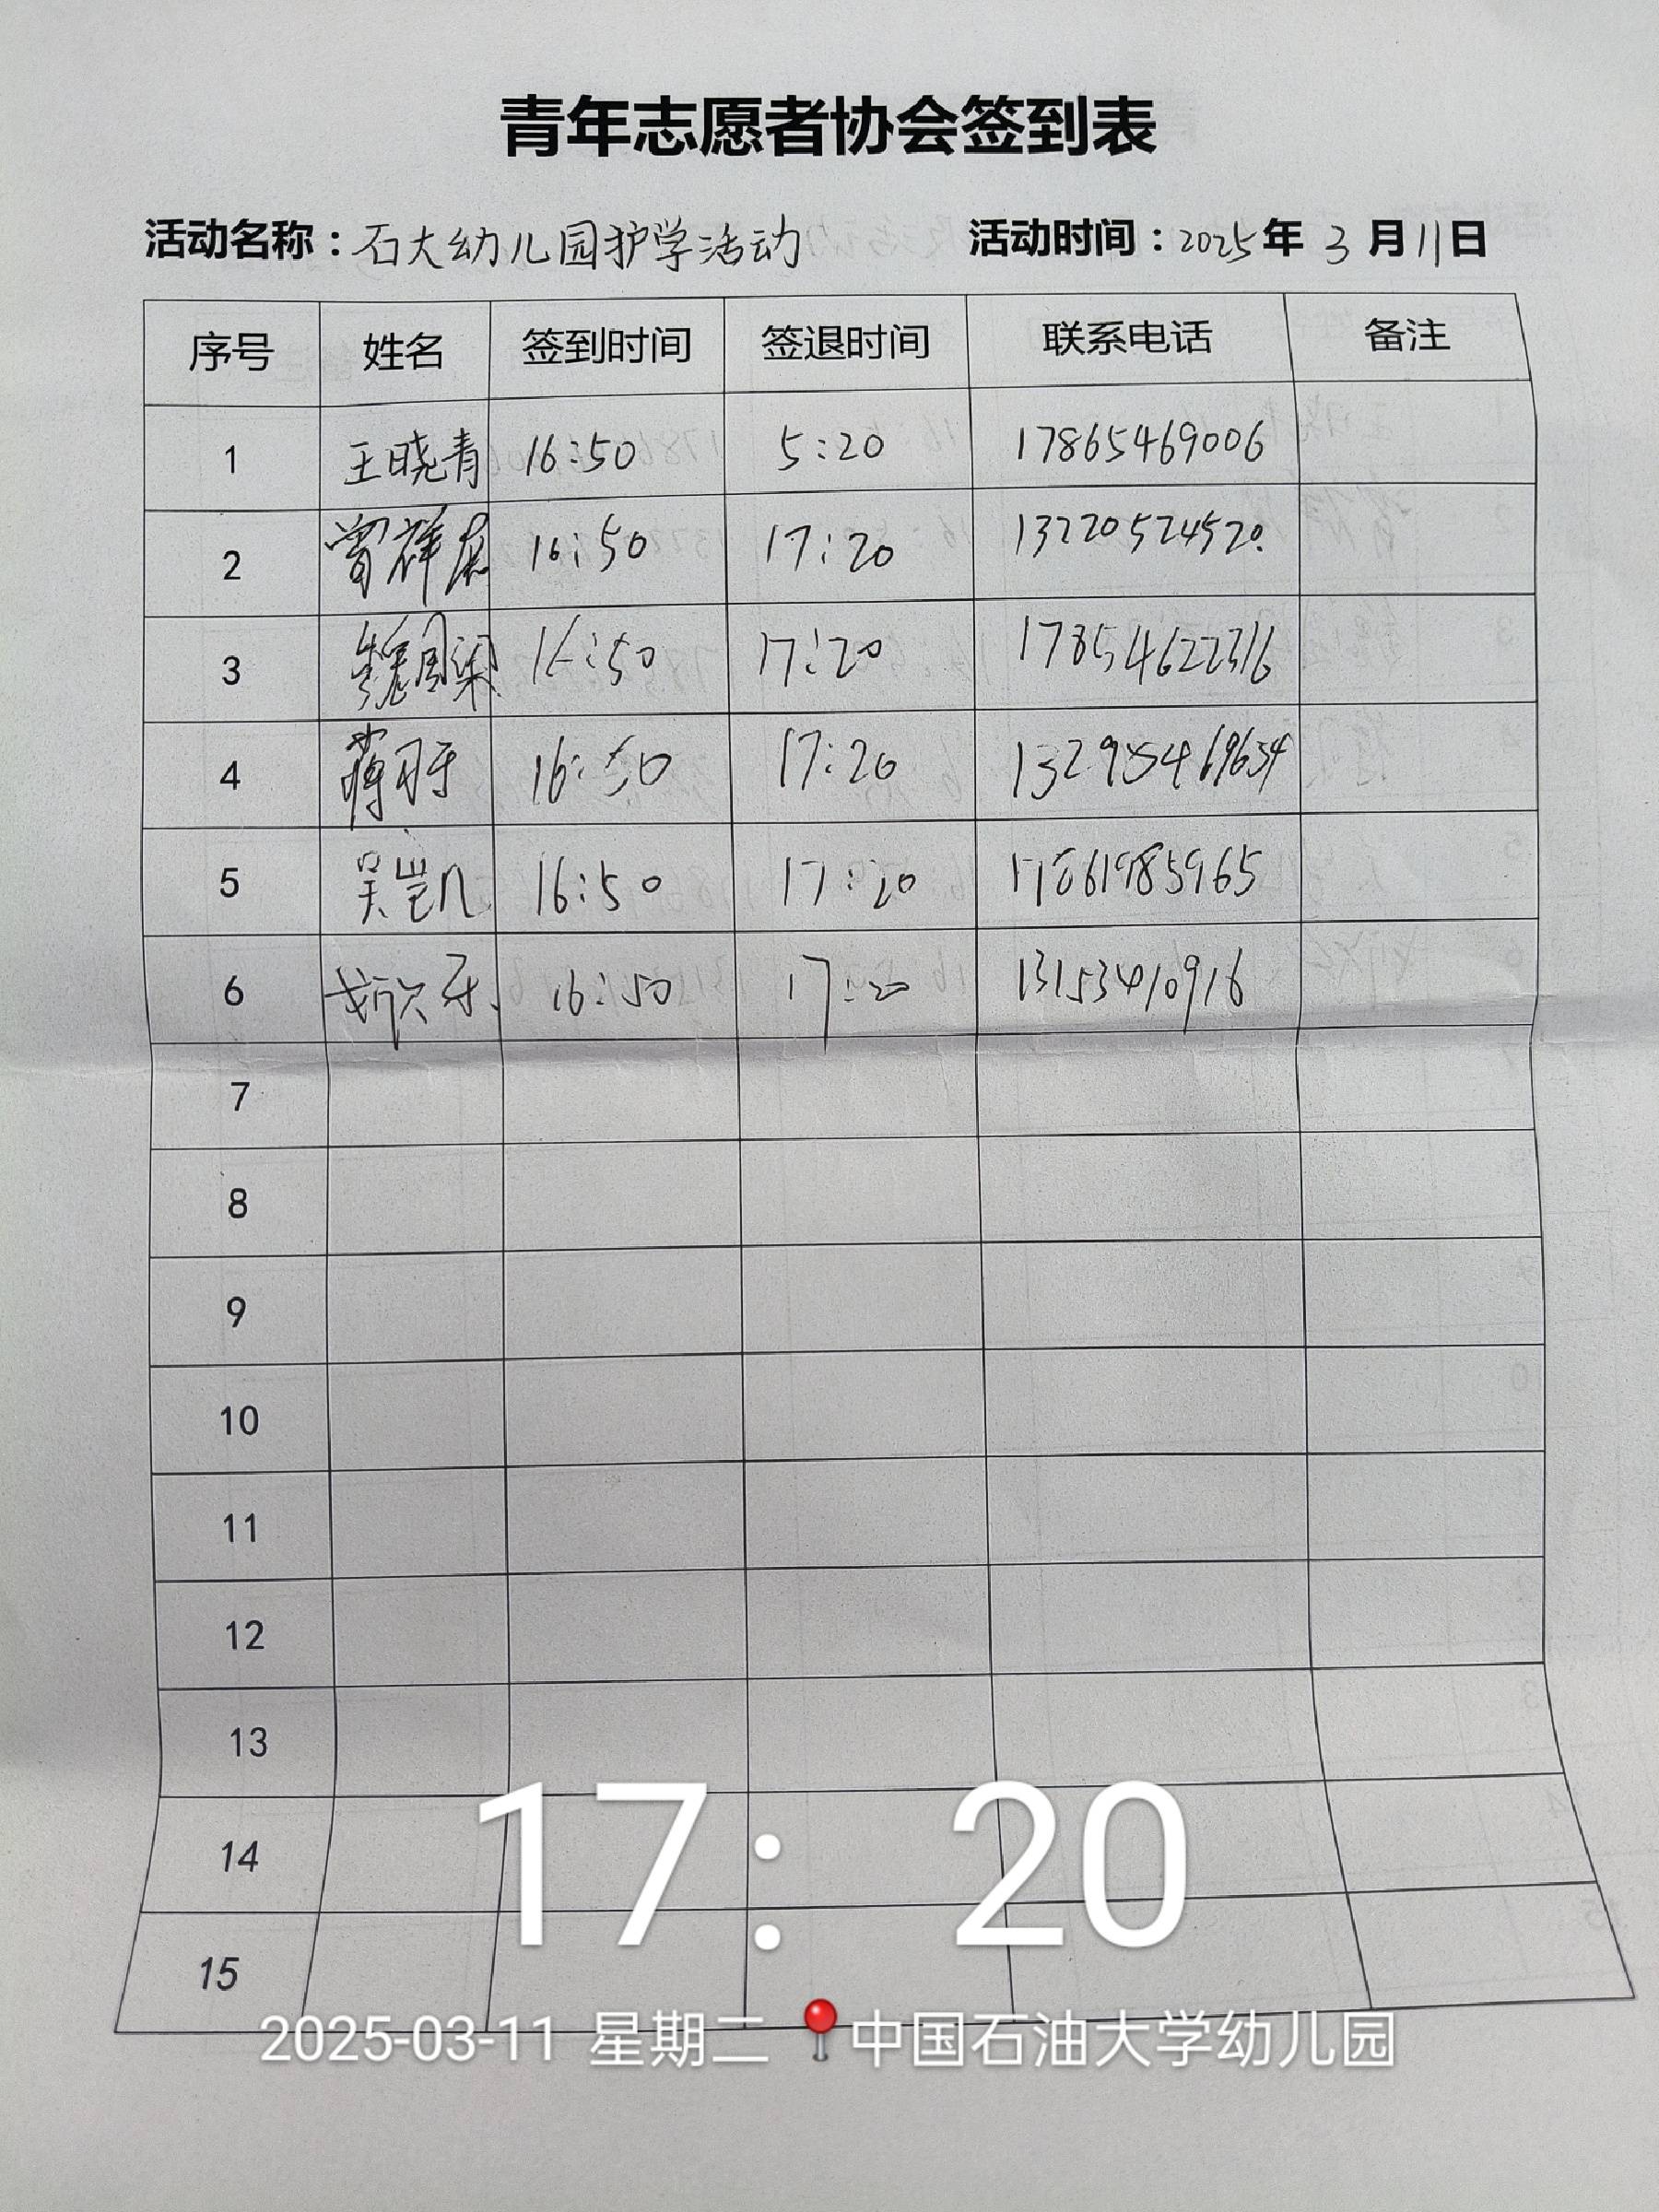 青年志愿者协会签到表
活动名称：石大幼儿园护学活动 活动时间：2025年 3 月 11日
序号 姓名 签到时间 签退时间 联系电话 备注
1 王晓青 16:50 5:20 17865469006
2 曾祥 16:50 17:20 13220524520
3 16:50 17:20 17854622316
4 16:50 17:20
5 吴岂凡 16:50 17:20
6 16:50 17:20 13153410916
7
8
9
10
11
12
13
14
15
17: 20
2025-03-11 星期二 中国石油大学幼儿园